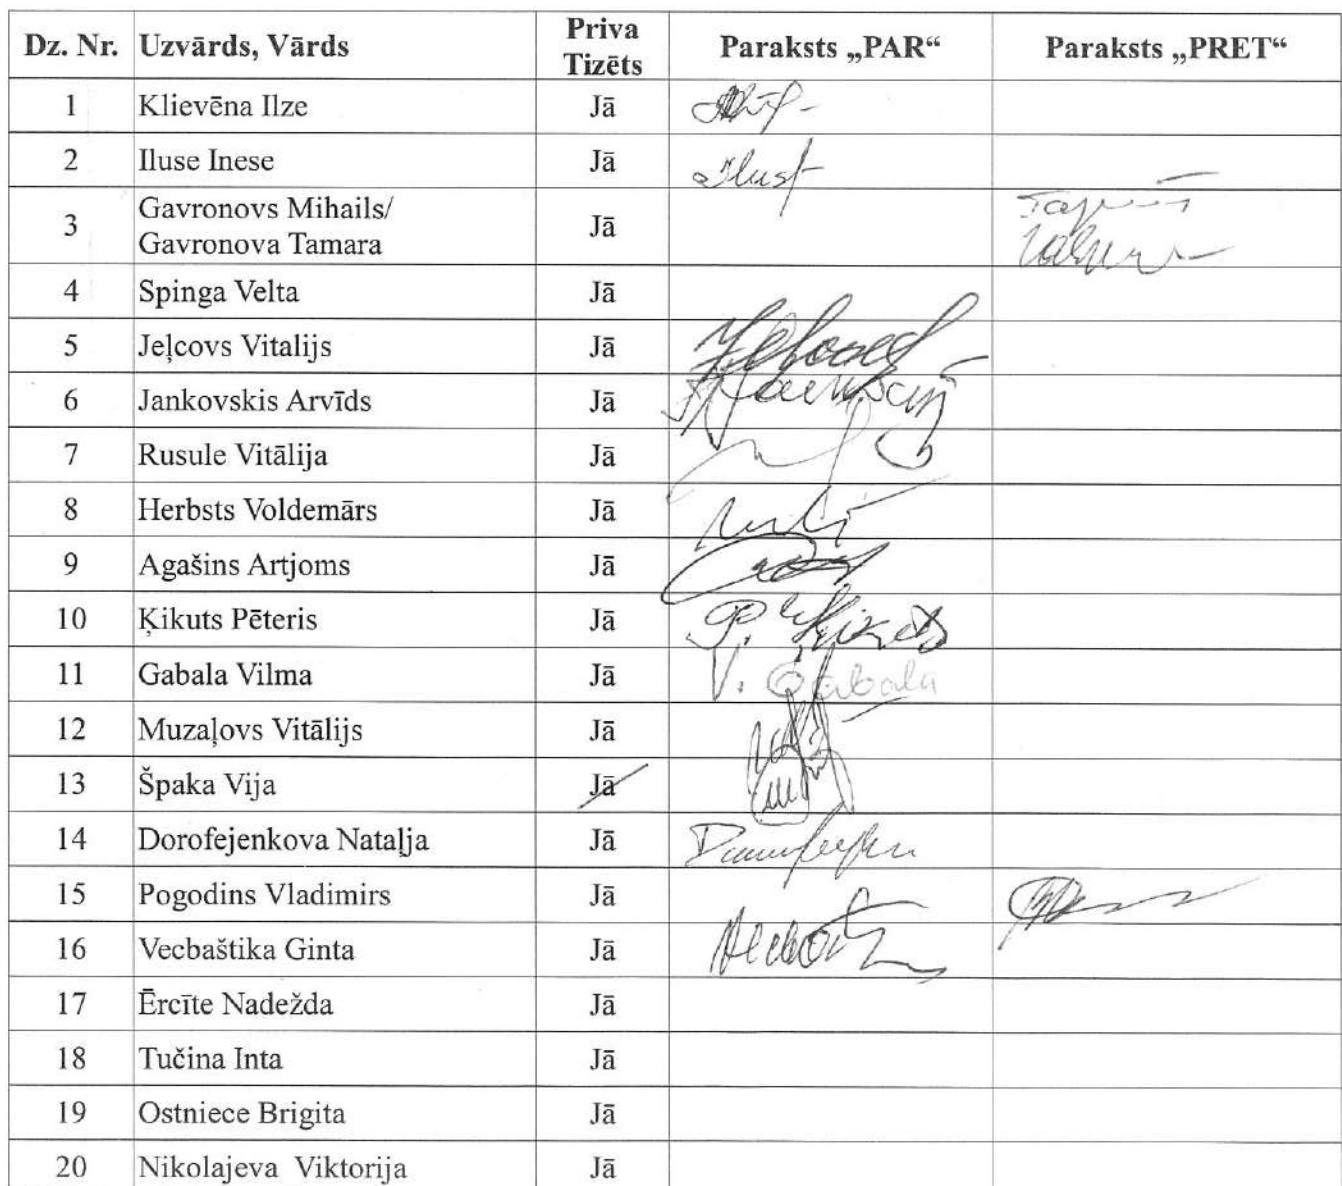 Dz. Nr. Uzvārds, Vārds Priva Tizēts Paraksts „PAR“ Paraksts „PRET“
1 Klievēna Ilze Jā
2 Iluse Inese Jā
3 Gavronovs Mihails/ Jā
Gavronova Tamara
4 Spinga Velta Jā
5 Jeļcovs Vitalijs Jā
6 Jankovskis Arvīds Jā
7 Rusule Vitālija Jā
8 Herbsts Voldemārs Jā
9 Agašins Artjoms Jā
10 Ķikuts Pēteris Jā
11 Gabala Vilma Jā V. Gabala
12 Muzaļovs Vitālijs Jā
13 Špaka Vija Jā
14 Dorofejenkova Nataļja Jā
15 Pogodins Vladimirs Jā
16 Vecbaštika Ginta Jā
17 Ērcīte Nadežda Jā
18 Tučina Inta Jā
19 Ostniece Brigita Jā
20 Nikolajeva Viktorija Jā